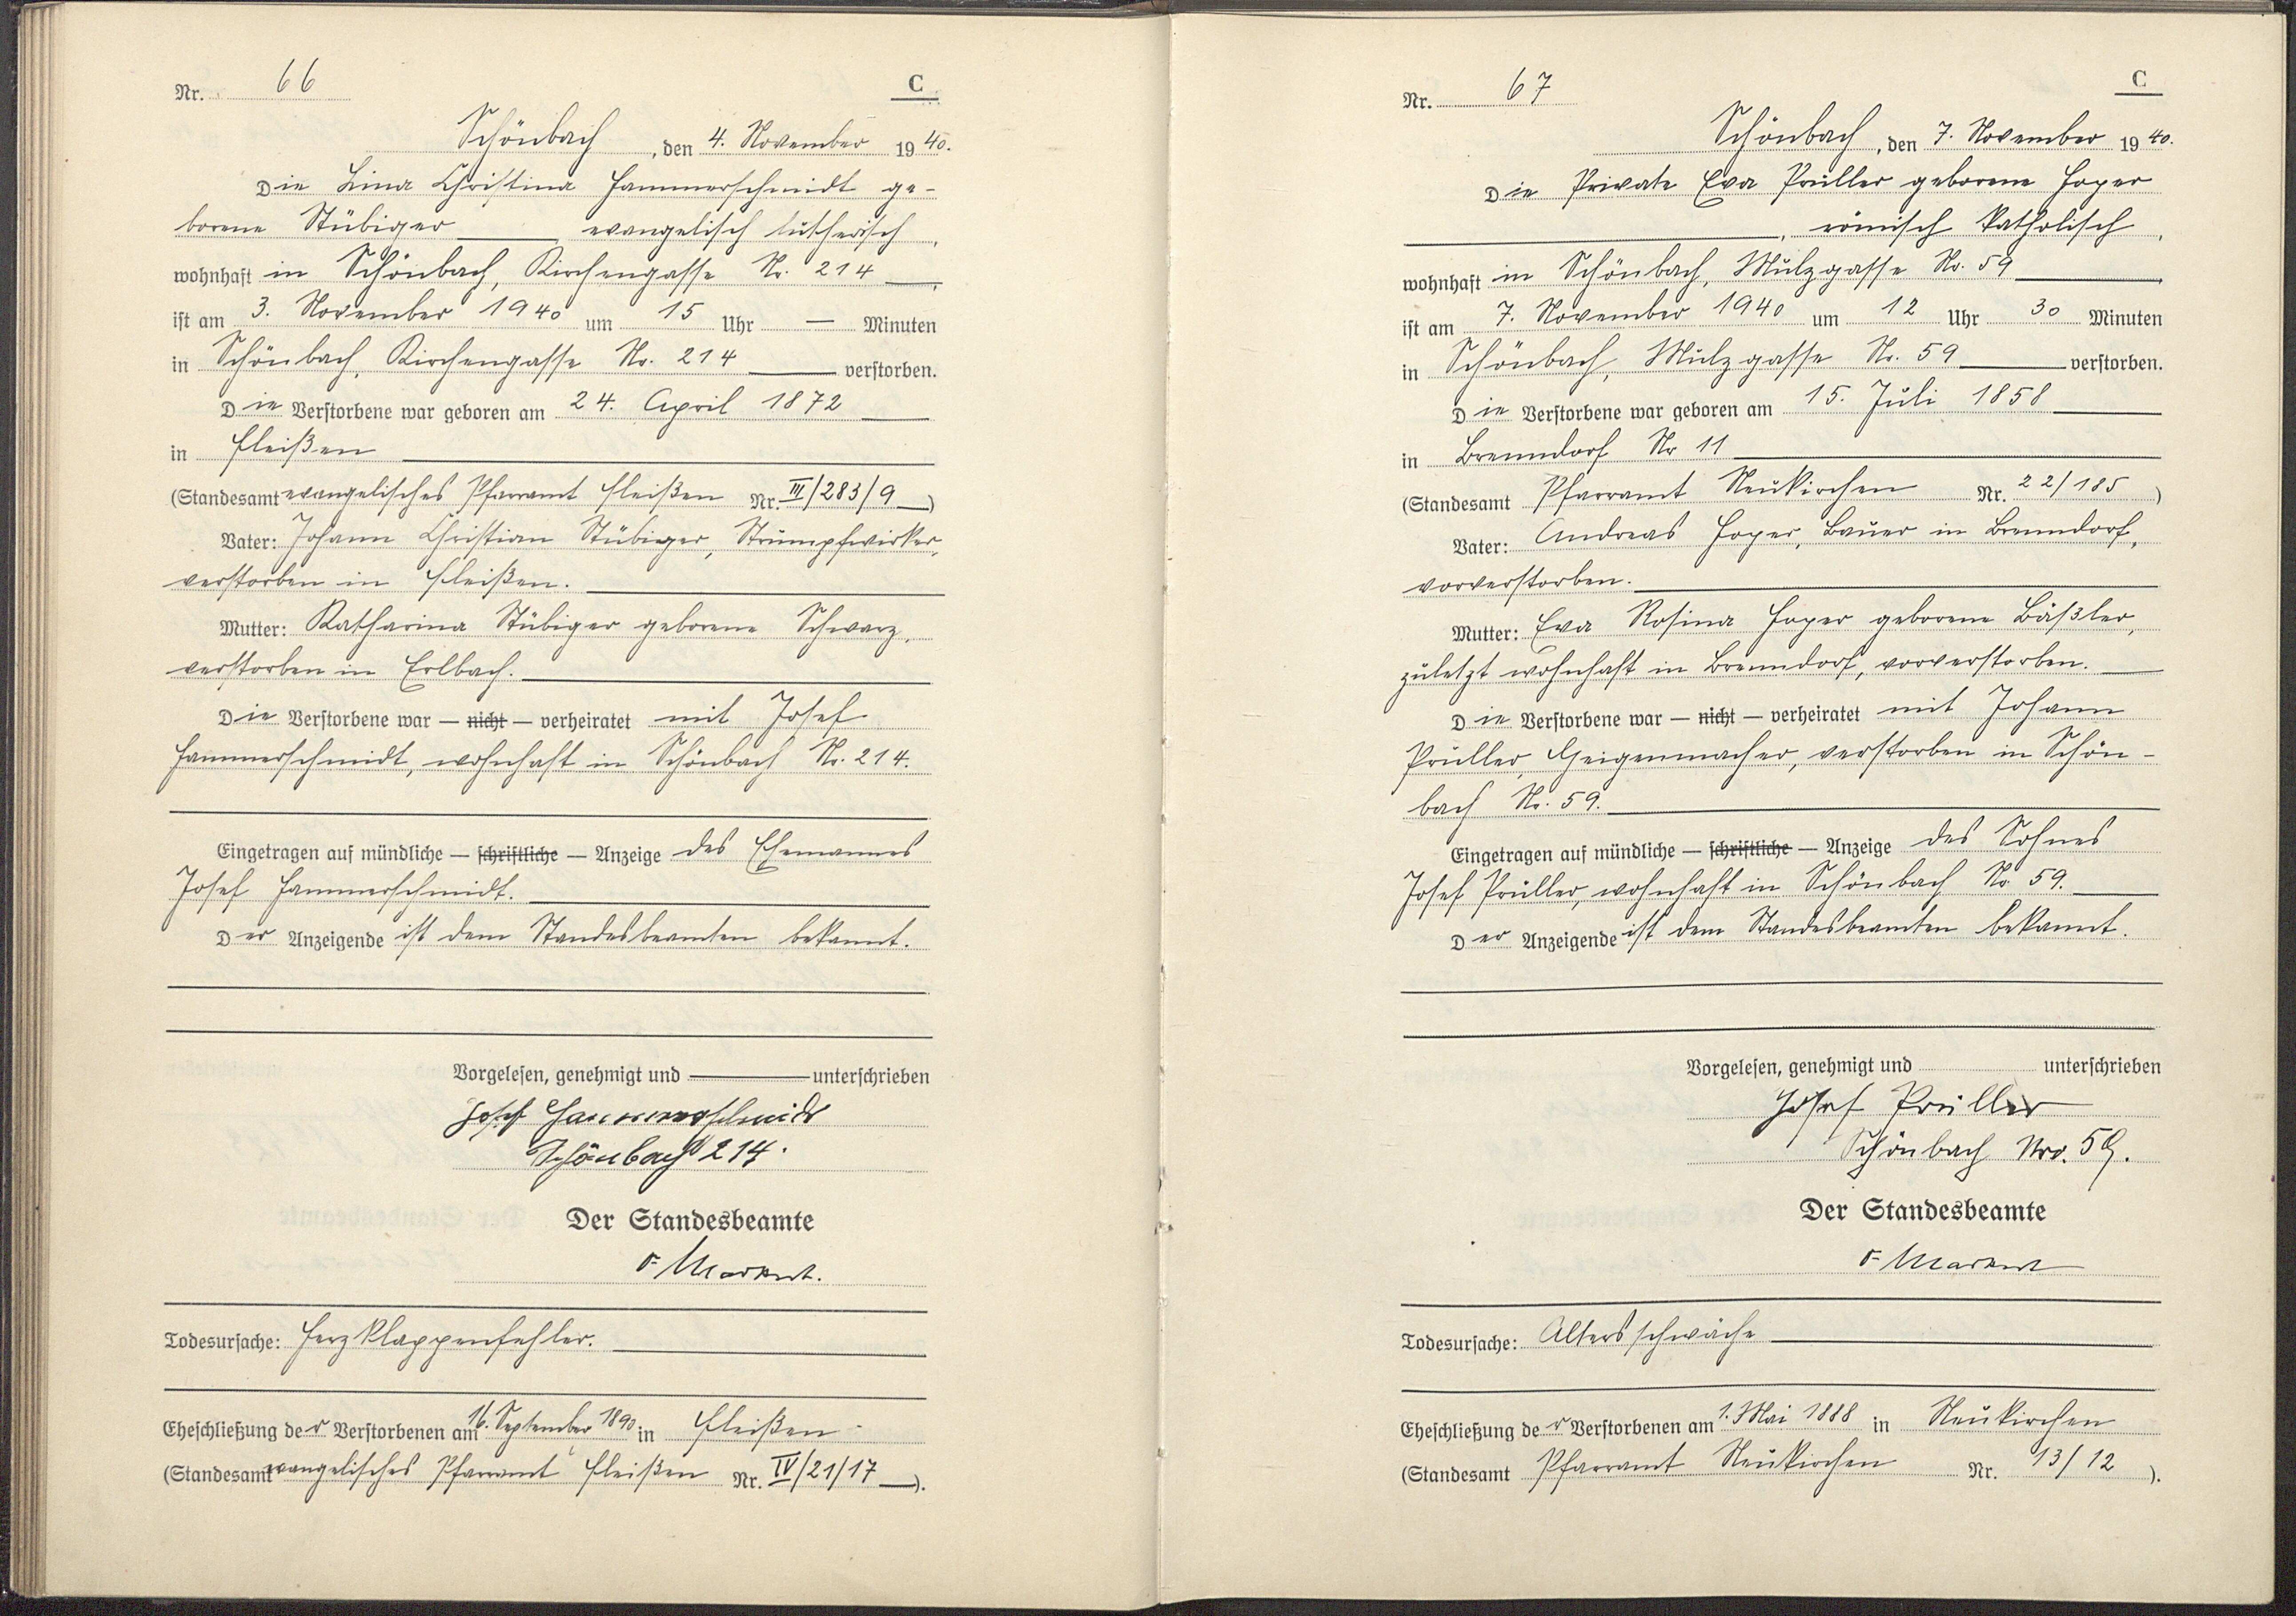 Nr. 66
C
Schönbach, den 4. November 1940.
Die Lina Christina Hammerschmidt ge-
borene Stübiger evangelisch lutherisch,
wohnhaft in Schönbach, Kirchengasse Nr. 214,
ist am 3. November 1940 um 15 Uhr — Minuten
in Schönbach, Kirchengasse Nr. 214 verstorben.
Die Verstorbene war geboren am 24. April 1872
in Fleißen
(Standesamt evangelisches Pfarramt Fleißen Nr. III/283/9)
Vater: Johann Christian Stübiger, Strumpfwirker,
verstorben in Fleißen.
Mutter: Katharina Stübiger geborene Schwarz,
verstorben in Erlbach.
Die Verstorbene war — nicht — verheiratet mit Josef
Hammerschmidt, wohnhaft in Schönbach Nr. 214.
Eingetragen auf mündliche — schriftliche — Anzeige des Ehemannes
Josef Hammerschmidt.
Der Anzeigende ist dem Standesbeamten bekannt.
Vorgelesen, genehmigt und unterschrieben
Josef Hammerschmidt
Schönbach 214.
Der Standesbeamte
Markert.
Todesursache: Herzklappenfehler.
Eheschließung der Verstorbenen am 16. September 1890 in Fleißen
(Standesamt evangelisches Pfarramt Fleißen Nr. IV/21/17).
Nr. 67
C
Schönbach, den 7. November 1940.
Die Private Eva Prüller geborene Hoyer
, römisch katholisch,
wohnhaft in Schönbach, Mulzgasse Nr. 59
ist am 7. November 1940 um 12 Uhr 30 Minuten
in Schönbach, Mulzgasse Nr. 59 verstorben.
Die Verstorbene war geboren am 15. Juli 1858
in Brenndorf Nr 11
(Standesamt Pfarramt Neukirchen Nr. 22/185)
Vater: Andreas Hoyer, Bauer in Brenndorf,
vorverstorben.
Mutter: Eva Rosina Hoyer geborene Bäßler,
zuletzt wohnhaft in Brenndorf, vorverstorben.
Die Verstorbene war — nicht — verheiratet mit Johann
Prüller, Geigenmacher, verstorben in Schön-
bach Nr. 59.
Eingetragen auf mündliche — schriftliche — Anzeige des Sohnes
Josef Prüller, wohnhaft in Schönbach Nr 59.
Der Anzeigende ist dem Standesbeamten bekannt.
Vorgelesen, genehmigt und unterschrieben
Josef Prüller
Schönbach Nro. 59.
Der Standesbeamte
Markert
Todesursache: Altersschwäche
Eheschließung der Verstorbenen am 1. Mai 1888 in Neukirchen
(Standesamt Pfarramt Neukirchen Nr. 13/12).